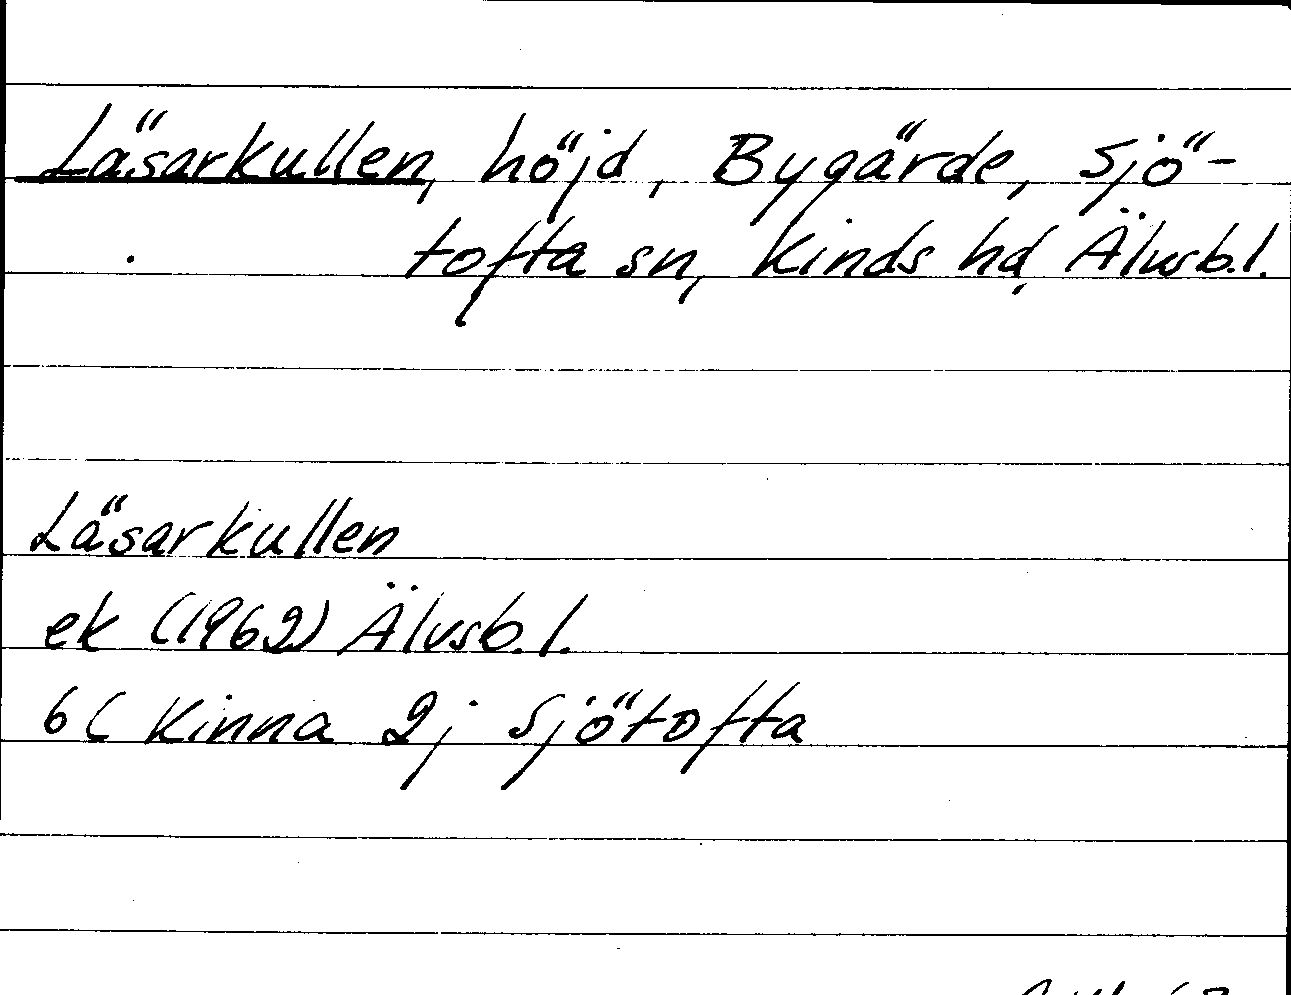 Läsarkullen, höjd, Bygärde, Sjö-
tofta sn, Kinds hd, Älvsb.l.
Läsarkullen
ek (1962) Älvsb.l.
6C Kinna 2j Sjötofta